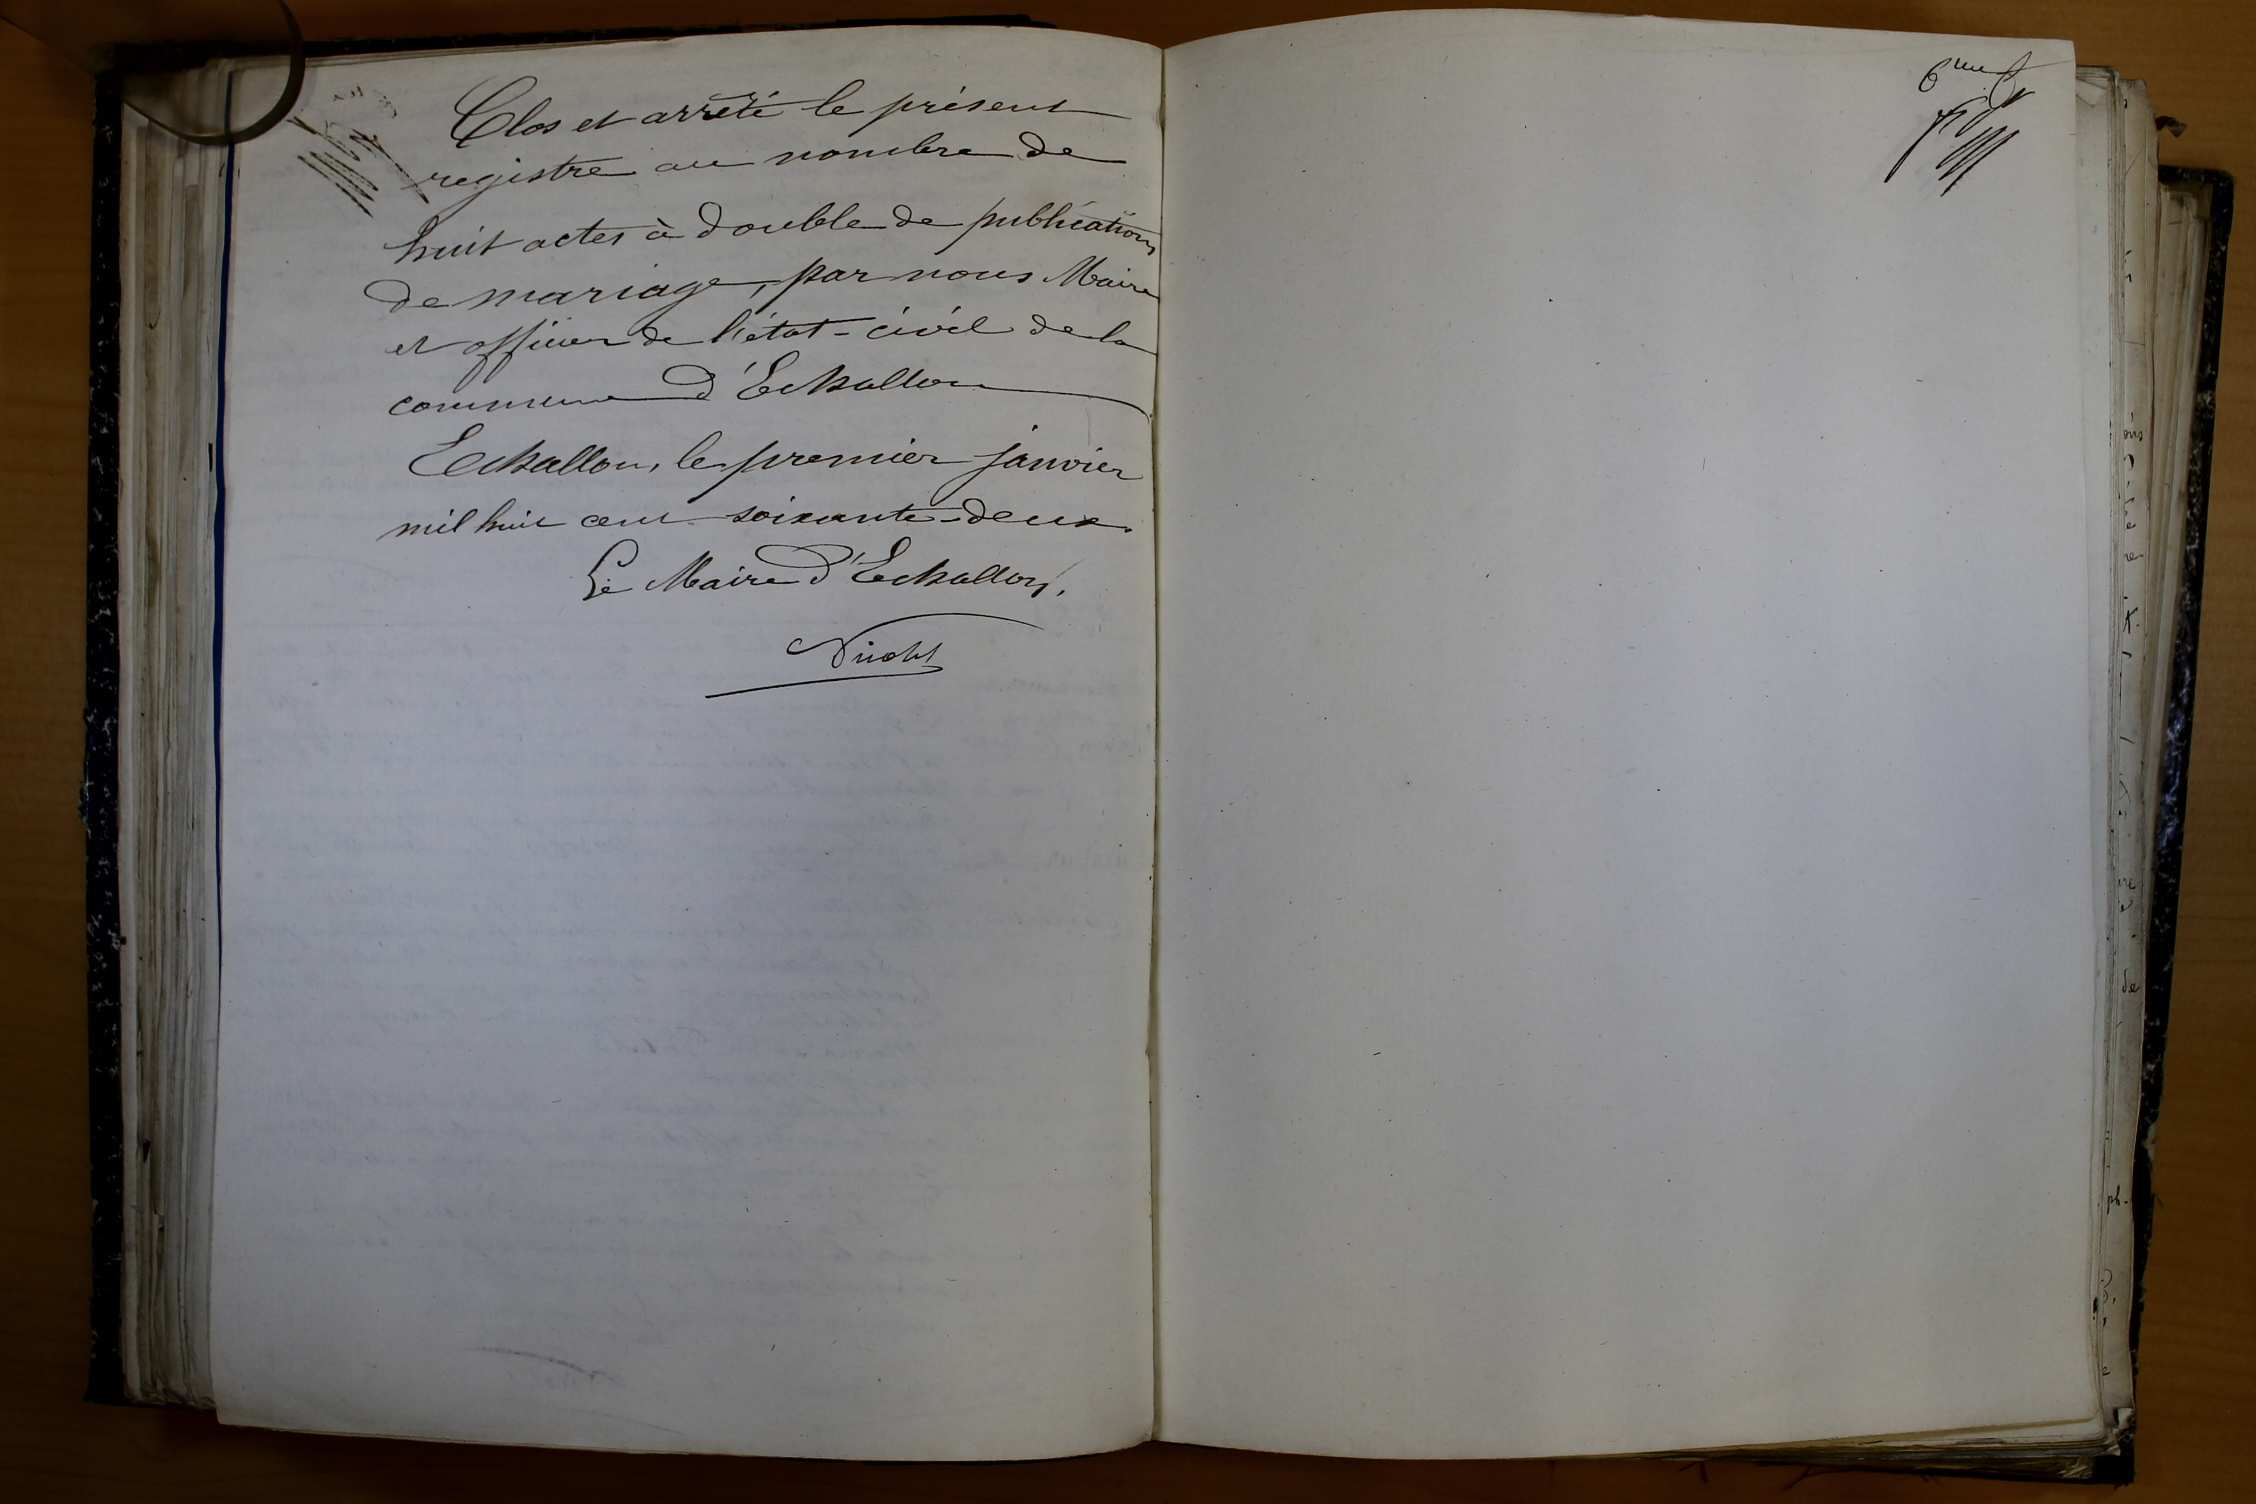 Clos et arrêté le présent
registre au nombre de
huit actes à double de publications
de mariage, par nous Maire
et officier de l'état-civil de la
commune d'Echallon
Echallon, le premier janvier
mil huit cent soixante-deux.
Le Maire d'Echallon,
6me